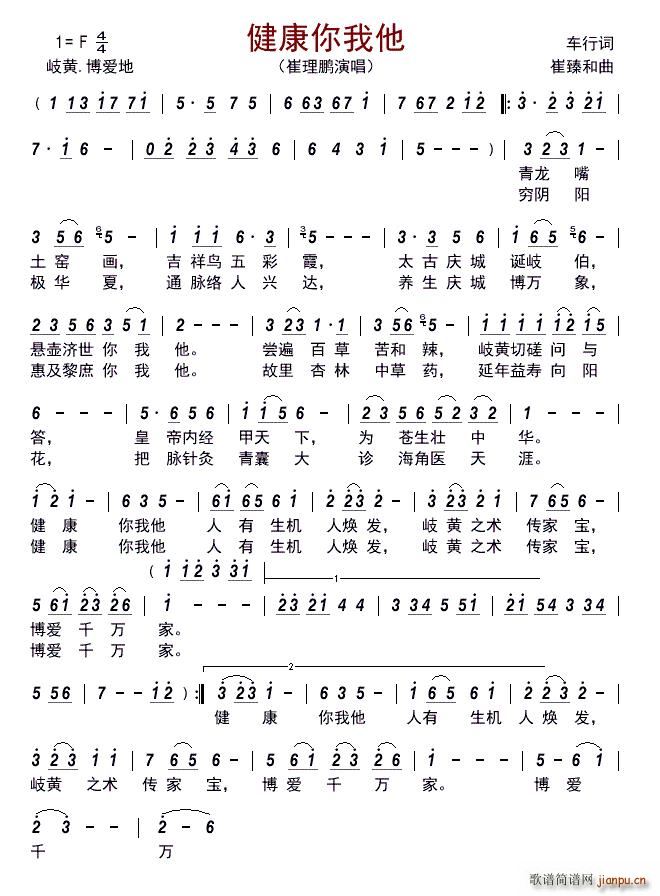 健康你我他
1= F 4/4
车行词
岐黄.博爱地
（崔理鹏演唱）
崔臻和曲
( 1 13 17 71 | 5· 5 75 | 67 67 2 12 |: 3· 2 3 21 |
7· 1 6 - | 02 23 43 6 | 6 4 3 1 | 5 - - - ) | 3 23 1 - |
青龙 嘴
穷阴 阳
3 56 5 - | 1 11 6· 3 | 5 - - - | 3 2 35 676 | 5 - - - |
土窑 画， 吉祥鸟五彩霞， 太古庆城 诞岐 伯，
极华 夏， 通脉络人兴达， 养生庆城 博万 象，
23 56 3 51 | 2 - - - | 3 23 1·1 | 3 56 5 - | 11 11 12 15 |
悬壶济世你我 他。 尝遍 百草 苦和辣， 岐黄切磋问与
惠及黎庶你我 他。 故里 杏林 中草药， 延年益寿向阳
6 - - - | 5· 6 56 | 1 15 6 - | 2 35 65 2 32 | 1 - - - |
答， 皇 帝内经 甲天 下， 为 苍生壮 中 华。
花， 把 脉针灸 青囊 大 诊 海角医 天 涯。
1 2 1 - | 6 3 5 - | 61 65 6 1 | 2 23 2 - | 3 23 2 1 | 7 65 6 - |
健 康 你我他 人 有 生机 人焕发， 岐 黄之术 传家 宝，
健 康 你我他 人 有 生机 人焕发， 岐 黄之术 传家 宝，
( 1 12 3 31 |
1
5 61 23 26 | 1 - - - | 23 23 4 4 | 3 34 5 51 | 21 54 3 4 |
博爱 千 万 家。
博爱 千 万 家。
2
5 56 | 7 - - 12 ) :| 3 23 1 | 6 3 5 - | 1 65 6 1 | 2 23 2 - |
健 康 你我他 人有 生机 人 焕 发，
3 23 1 1 | 7 65 6 - | 5 61 23 26 | 1 - - - | 5 - 61 |
岐黄 之术 传 家 宝， 博 爱 千 万 家。 博 爱
2 3 - - | 2 - 6 |
千 万
歌谱简谱网
jianpu.cn